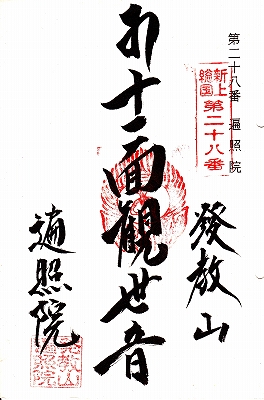 第二十八番 遍照院
新上総国
第二十八番
發教山
十一面觀世音
遍照院
発教山
遍照院